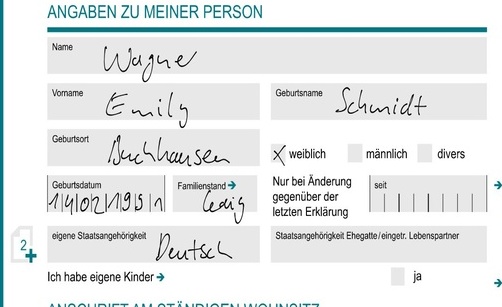 ANGABEN ZU MEINER PERSON
Name
Wagner
Vorname
Emily
Geburtsname
Schmidt
Geburtsort
Buchhausen
x weiblich männlich divers
Geburtsdatum
14021991
Familienstand →
ledig
Nur bei Änderung
gegenüber der
letzten Erklärung
seit
2
eigene Staatsangehörigkeit
Deutsch
Staatsangehörigkeit Ehegatte/eingetr. Lebenspartner
Ich habe eigene Kinder →
ja
ANSCHRIFT AM STÄNDIGEN WOHNSITZ